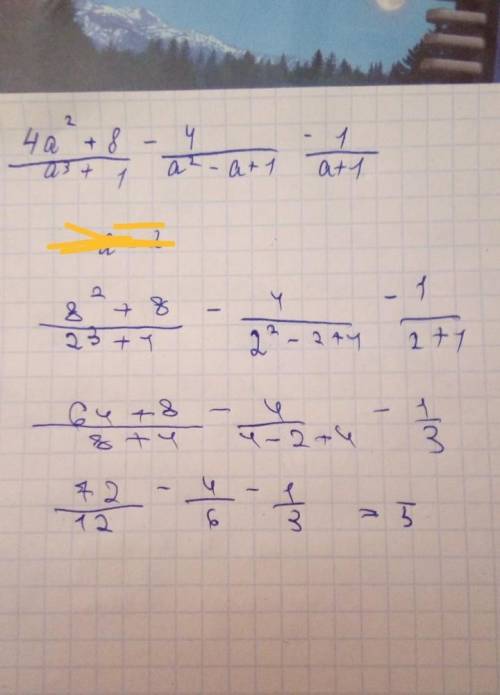 4a² + 8 / a³ + 1 - 4 / a² - a + 1 - 1 / a + 1
8² + 8 / 2³ + 1 - 4 / 2² - 2 + 1 - 1 / 2 + 1
64 + 8 / 8 + 4 - 4 / 4 - 2 + 4 - 1 / 3
72 / 12 - 4 / 6 - 1 / 3 = 5